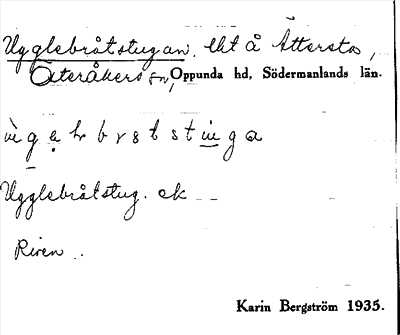 Ugglebråtstugan. lht å Åttersta,
Österåkers sn, Oppunda hd, Södermanlands län.
Ugglebråtstug. ek
Riven.
Karin Bergström 1935.